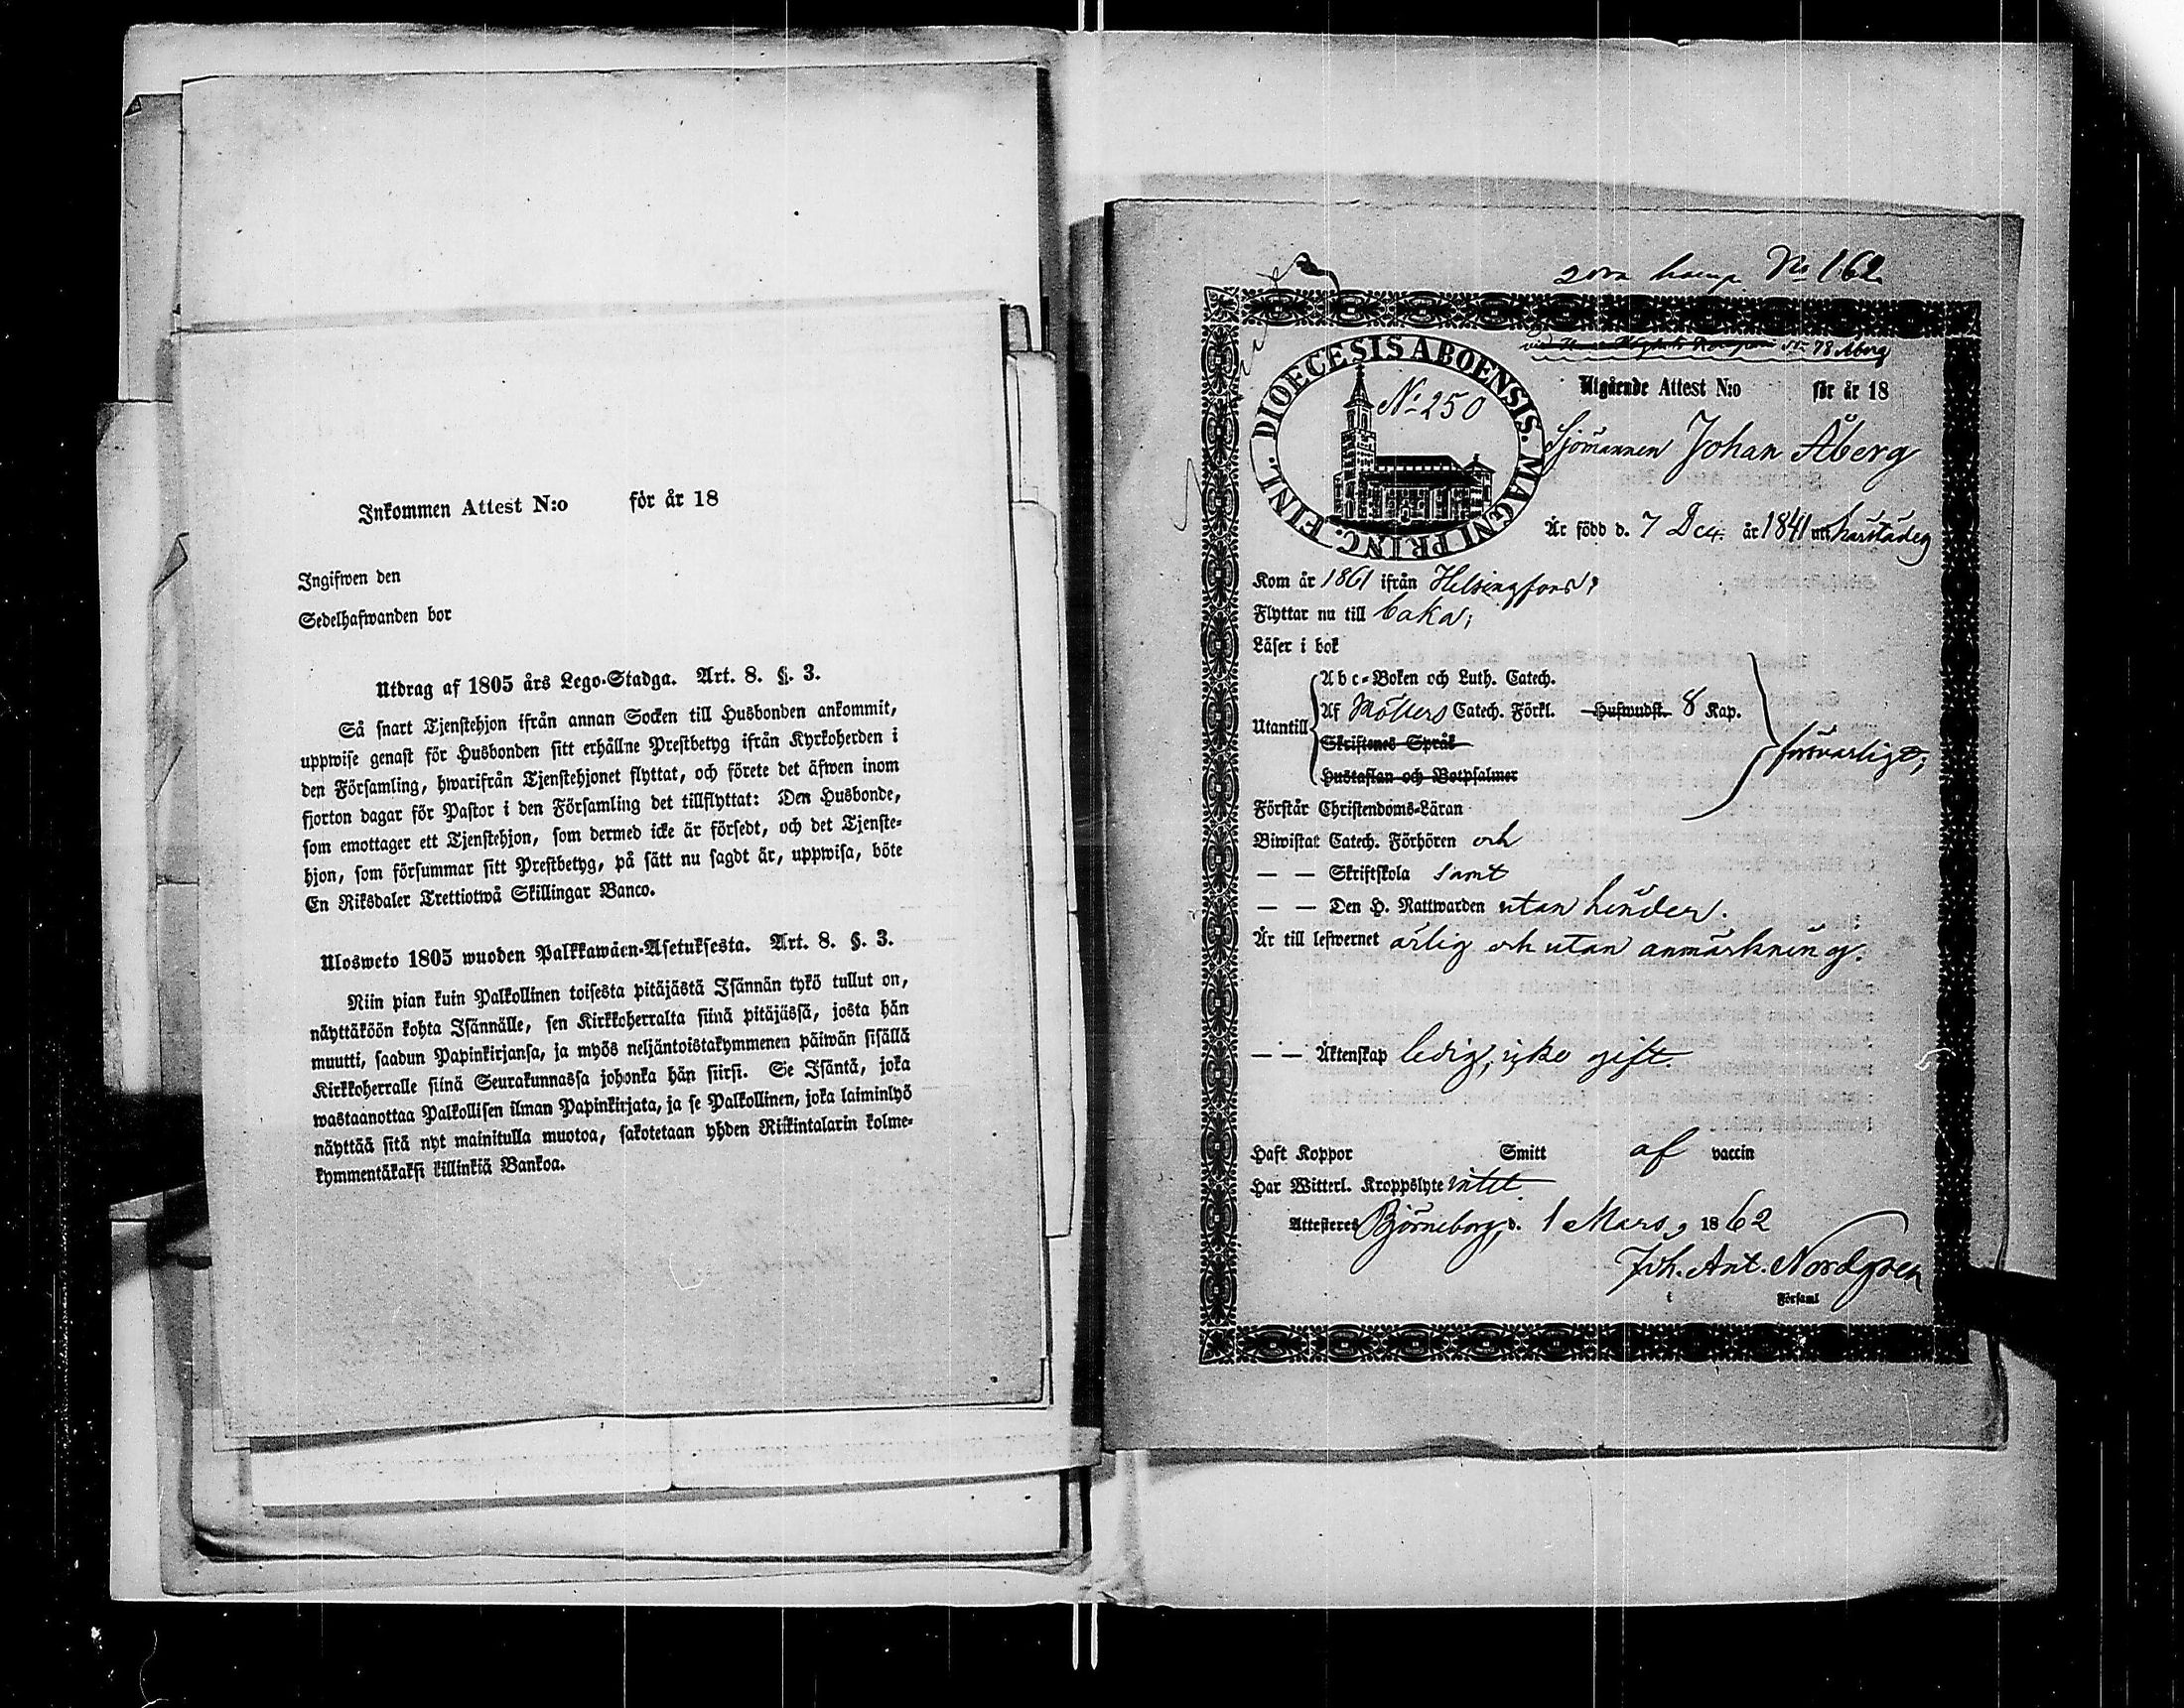 Inkommen Attest N:o för år 18
Ingifwen den
Sedelhafwanden bor
Utdrag af 1805 års Lego-Stadga. Art. 8. §. 3.
Så snart Tjenstehjon ifrån annan Socken till Husbonden ankommit,
uppwise genast för Husbonden sitt erhållne Prestbetyg ifrån Kyrkoherden i
den Församling, hwarifrån Tjenstehjonet flyttat, och förete det äfwen inom
fjorton dagar för Pastor i den Församling det tillflyttat: Den Husbonde,
som emottager ett Tjenstehjon, som dermed icke är försedt, och det Tjenste-
hjon, som försummar sitt Prestbetyg, på sätt nu sagdt är, uppwisa, böte
En Riksdaler Trettiotwå Skillingar Banco.
Ulosweto 1805 wuoden Palkkawäen-Asetuksesta. Art. 8. §. 3.
Niin pian kuin Palkollinen toisesta pitäjästä Isännän tykö tullut on,
näyttäköön kohta Isännälle, sen Kirkkoherralta siinä pitäjässä, josta hän
muutti, saadun Papinkirjansa, ja myös neljäntoistakymmenen päiwän sisällä
Kirkkoherralle siinä Seurakunnassa johonka hän siirsi. Se Isäntä, joka
wastaanottaa Palkollisen ilman Papinkirjata, ja se Palkollinen, joka laiminlyö
näyttää sitä nyt mainitulla muotoa, sakotetaan yhden Riikintalarin kolme-
kymmentäkaksi killinkiä Bankoa.
No 162
No 78 Åberg
DIOECESIS ABOENSIS. MAGNI PRINC. FINL.
No 250
Utgående Attest N:o för år 18
Sjömannen Johan Åberg
Är född d. 7 Dec. år 1841 uti
Kom år 1861 ifrån Helsingfors;
Flyttar nu till baka;
Läser i bok
Abc-Boken och Luth. Catech.
Utantill Af Möllers Catech. Förkl. Hufwudst. 8 Kap.
Skriftenes Språk
Hustaflan och Botpsalmer
försvarligt;
Förstår Christendoms-Läran
Biwistat Catech. Förhören och
— — Skriftskola samt
— — Den H. Nattwarden utan hinder.
Är till lefwernet ärlig och utan anmärkning.
— — Äktenskap ledig, icke gift.
Haft Koppor Smitt af vaccin
Har Witterl. Kroppslyte intet
Attesteres Björneborg, d. 1 Mars, 1862
Joh. Ant. Nordgren
i Församl